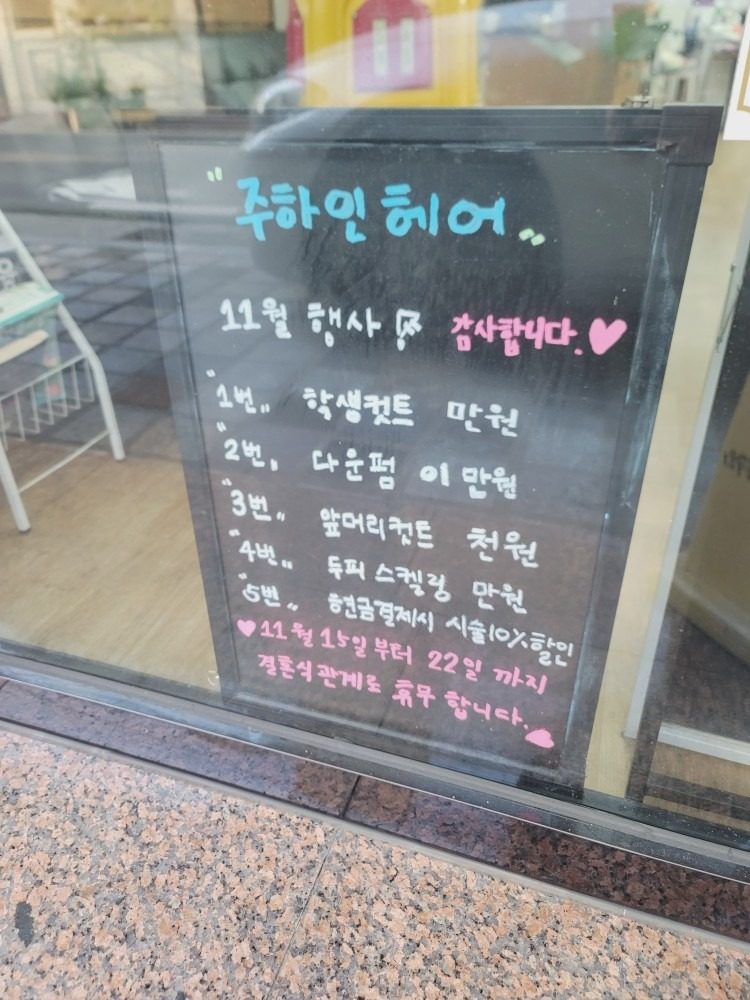 "주하인 헤어"
11월 행사 감사합니다.♥
"1번" 학생컷트 만원
"2번" 다운펌 이만원
"3번" 앞머리컷트 천원
"4번" 두피 스켈링 만원
"5번" 현금결제시 시술10%할인
♥11월 15일부터 22일 까지
결혼식관계로 휴무 합니다.